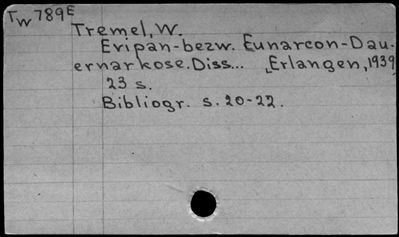 Tw789E
Tremel, W.
Evipan-bezw. Eunarcon-Dau-
ernarkose. Diss... [Erlangen, 1939]
23 s.
Bibliogr. s. 20-22.